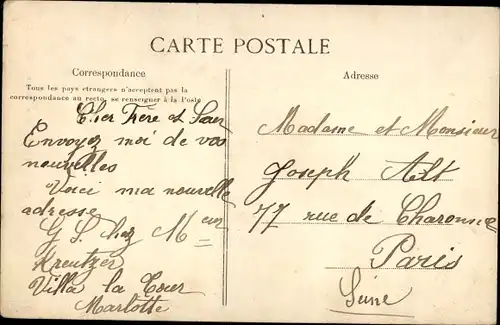 CARTE POSTALE
Correspondance
Tous les pays étrangers n'acceptent pas la
correspondance au recto, se renseigner à la Poste
Cher Frere et Sœur
Envoyez moi de vos
nouvelles
Voici ma nouvelle
adresse
G S. chez Meur
Kreutzer
Villa la Tour
Marlotte
Adresse
Madame et Monsieur
Joseph Alt
77 rue de Charonne
Paris
Seine